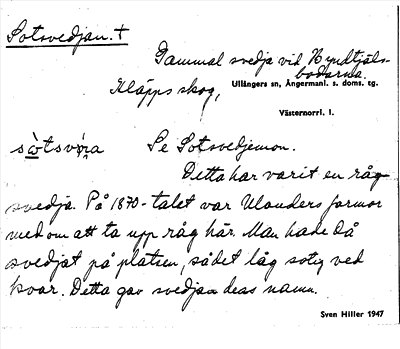 Sotsvedjan. +
Gammal svedja vid Hyndtjäls-
bodarna.
Kläpps skog, Ullångers sn, Ångermanl. s. doms. tg.
Västernorrl. l.
Se Sotsvedjemon.
Detta har varit en råg-
svedja. På 1870-talet var Ulanders farmor
med om att ta upp råg här. Man hade då
svedjat på platsen, så det låg sotig ved
kvar. Detta gav svedjan dess namn.
Sven Hiller 1947